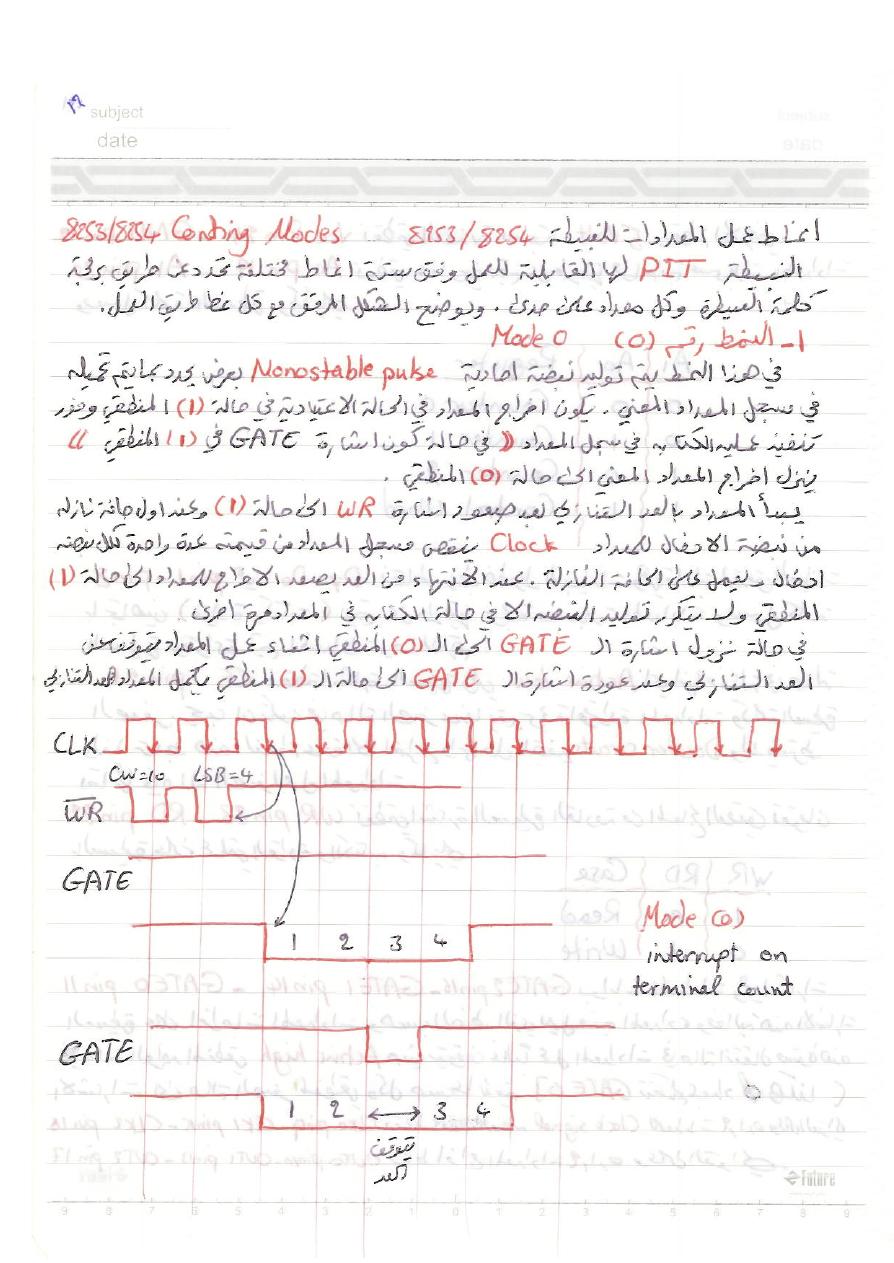 ١٢
subject
date
انماط عمل المعدادات للشيطة 8253/8254 8253/8254 Conting Modes
الشيطة PIT لها القابلية للعمل وفق ستة انماط مختلفة تحدد عن طريق برمجة
كلمة السيطرة وكل معداد على حدى. ويوضح الشكل المرفق مع كل نمط طريق العمل.
1- النمط رقم (0) Mode 0
في هذا النمط يتم توليد نبضة احادية Monostable pulse بعرض يحدد بما يتم تحميله
في سجل المعداد المعني. يكون اخراج المعداد في الحالة الاعتيادية في حالة (1) المنطقي وفور
تنفيذ عملية الكتابه في سجل المعداد (( في حالة كون اشارة GATE في (1) المنطقي ))
ينزل اخراج المعداد المعني الى حالة (0) المنطقي.
يبدأ المعداد بالعد التنازلي بعد صعود اشارة WR الى حالة (1) وعند اول حافة نازله
من نبضة الادخال للمعداد Clock ينقص مسجل المعداد من قيمته عدة واحدة لكل نبضه
ادخال ويعمل على الحافة النازلة. عند الانتهاء من العد يصعد الاخراج للمعداد الى حالة (1)
المنطقي ولا يتكرر توليد النبضه الا في حالة الكتابه في المعداد مرة اخرى
في حالة نزول اشارة الـ GATE الى الـ (0) المنطقي اثناء عمل المعداد يتوقف عن
العد التنازلي وعند عودة اشارة الـ GATE الى حالة الـ (1) المنطقي يكمل المعداد العد التنازلي
CLK
CW=10 LSB=4
WR
GATE
1 2 3 4
Mode (0)
interrupt on
terminal count
GATE
1 2 3 4
يتوقف
العد
Future
9 8 7 6 5 4 3 2 1 0 1 2 3 4 5 6 7 8 9